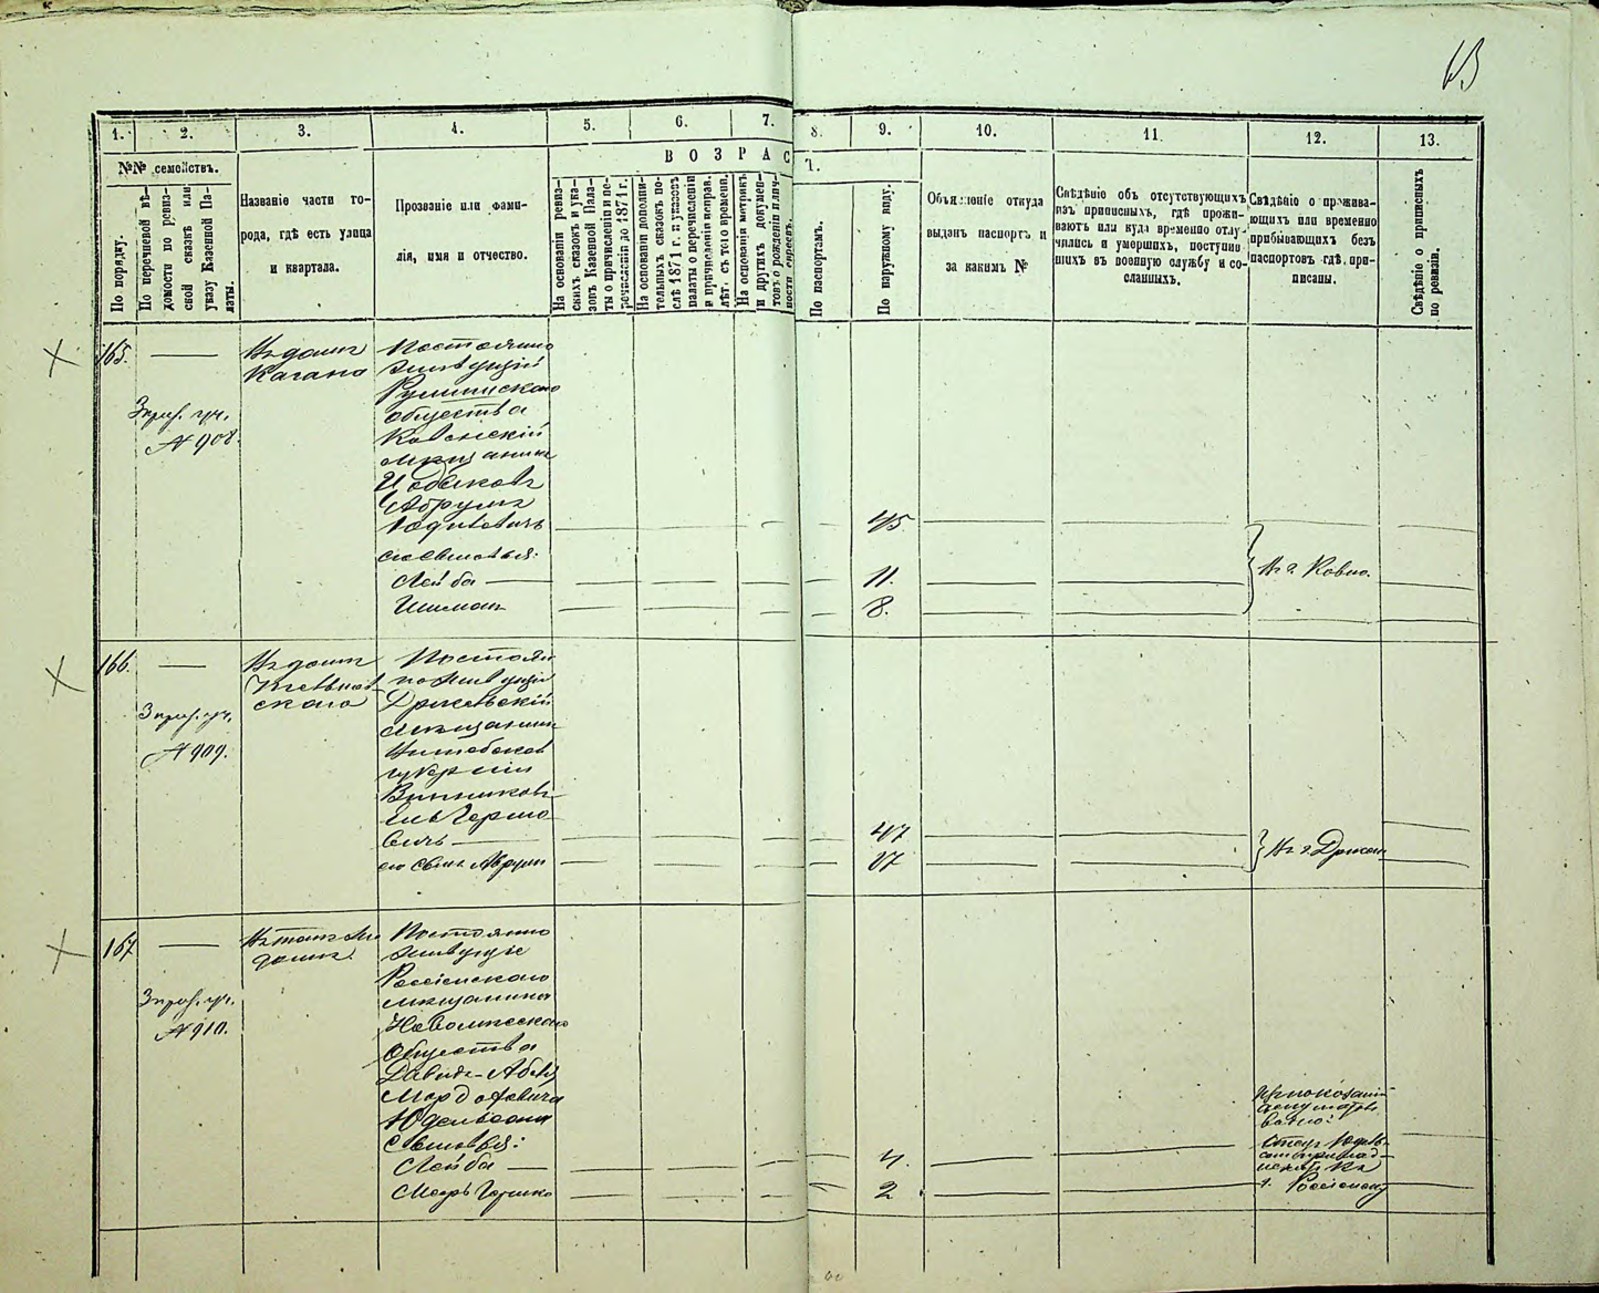 63
1. 2. 3. 4. 5. 6. 7. 8. 9. 10. 11. 12. 13.
№№ семействъ.
По порядку.
По перечневой вѣ-
домости по ревиз-
ской сказкѣ или
указу Казенной Па-
латы.
Названіе части го-
рода, гдѣ есть улица
и квартала.
Прозваніе или фами-
лія, имя и отчество.
ВОЗРАСТ.
На основаніи ревиз-
скихъ сказокъ и ука-
зовъ Казенной Пала-
ты о причисленіи и пе-
речисленіи до 1871 г.
На основаніи дополни-
тельныхъ сказокъ по-
слѣ 1871 г. и указовъ
палаты о перечисленіи
и причисленіи неправ.
лѣт. съ того времени.
На основаніи метрикъ
и другихъ докумен-
товъ о рожденіи и лич-
ности евреевъ.
По паспортамъ.
По наружному виду.
Объясненіе откуда
выданъ паспортъ и
за какимъ №
Свѣдѣніе объ отсутствующихъ
изъ приписныхъ, гдѣ прожи-
ваютъ или куда временно отлу-
чились и умершихъ, поступив-
шихъ въ военную службу и со-
сланныхъ.
Свѣдѣніе о прожива-
ющихъ или временно
прибывающихъ безъ
паспортовъ гдѣ при-
писаны.
Свѣдѣніе о приписныхъ
по ревизіи.
165.
№ 908.
Въ домѣ
Кагана
Постоянно
живущій
Румшискаго
общества
Ковенскій
мѣщанинъ
Абрумъ
его сыновья:
Лейба
Шимон
45
11.
8.
Въ г. Ковно.
166.
№ 909.
Въ домѣ
скаго
Постоян
но живущій
мѣщанинъ
Витебской
губерніи
Винниковъ
вичъ
его сынъ Абрумъ
47
17
167
№ 910.
домѣ
Постоянно
живущіе
Россіенскаго
мѣщанина
общества
Давида-Абеля
Мордховича
Юдельсона
сыновья:
Лейба
4.
2